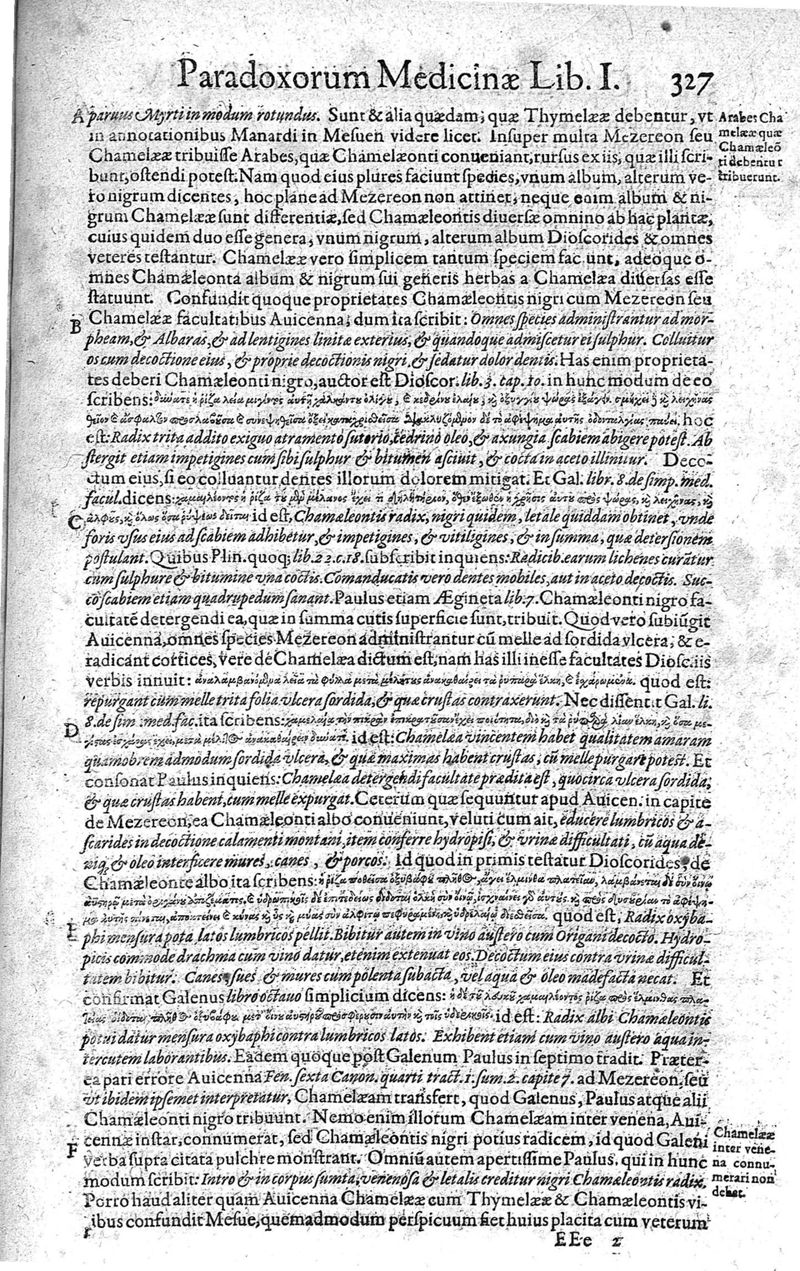 Paradoxorum Medicinæ Lib. I. 327
A paruus Myrti in modum rotundus. Sunt & alia quædam, quæ Thymelææ debentur, vt
in annotationibus Manardi in Mesuen videre licet. Insuper multa Mezereon seu
Chamelææ tribuisse Arabes, quæ Chamæleonti conueniant, rursus ex iis, quæ illi scri-
bunt, ostendi potest. Nam quod eius plures faciunt species, vnum album, alterum ve-
ro nigrum dicentes, hoc plane ad Mezereon non attinet, neque enim album & ni-
grum Chamelææ sunt differentiæ, sed Chamæleontis diuersæ omnino ab hac plantæ,
cuius quidem duo esse genera, vnum nigrum, alterum album Dioscorides & omnes
veteres testantur. Chamelææ vero simplicem tantum speciem faciunt, adeoque o-
mnes Chamæleonta album & nigrum sui generis herbas a Chamelæa diuersas esse
statuunt. Confundit quoque proprietates Chamæleontis nigri cum Mezereon seu
B Chamelææ facultatibus Auicenna, dum ita scribit: Omnes species administrantur ad mor-
pheam, & Albaras, & ad lentigines linitæ exterius, & quandoque admiscetur ei sulphur. Colluitur
os cum decoctione eius, & proprie decoctionis nigri, & sedatur dolor dentis. Has enim proprieta-
tes deberi Chamæleonti nigro, auctor est Dioscor. lib. 3. cap. 10. in hunc modum de eo
scribens:
hoc
est: Radix trita addito exiguo atramento sutorio, cedrino oleo, & axungia scabiem abigere potest. Ab
stergit etiam impetigines cum sibi sulphur & bitumen asciuit, & cocta in aceto illinitur. Deco-
ctum eius, si eo colluantur dentes illorum dolorem mitigat. Et Gal. libr. 8. de simp. med.
facul. dicens:
C id est, Chamæleontis radix, nigri quidem, letale quiddam obtinet, vnde
foris vsus eius ad scabiem adhibetur, & impetigines, & vitiligines, & in summa, quæ detersionem
postulant. Quibus Plin. quoq; lib. 22. c. 18. subscribit inquiens: Radicib. earum lichenes curãtur
cum sulphure & bitumine vna coctis. Comanducatis vero dentes mobiles, aut in aceto decoctis. Suc-
co scabiem etiam quadrupedum sanant. Paulus etiam Ægineta lib. 7. Chamæleonti nigro fa-
cultatẽ detergendi ea, quæ in summa cutis superficie sunt, tribuit. Quod vero subiũgit
Auicenna, omnes species Mezereon administrantur cũ melle ad sordida vlcera, & e-
radicant cortices, vere de Chamelæa dictum est, nam has illi inesse facultates Diosc. iis
verbis innuit: quod est:
repurgant cum melle trita folia vlcera sordida, & quæ crustas contraxerunt. Nec dissentit Gal. li.
8. de sim. med. fac. ita scribens:
D id est: Chamelæa vincentem habet qualitatem amaram
quamobrem admodum sordida vlcera, & quæ maximas habent crustas, cũ melle purgare potest. Et
consonat Paulus inquiens: Chamelæa detergendi facultate prædita est, quocirca vlcera sordida,
& quæ crustas habent, cum melle expurgat. Ceterum quæ sequuntur apud Auicen. in capite
de Mezereon, ea Chamæleonti albo conueniunt, veluti cum ait, educere lumbricos & a-
scarides in decoctione calamenti montani, item conferre hydropisi, & vrinæ difficultati, cũ aqua de-
niq; & oleo interficere mures, canes, & porcos, id quod in primis testatur Dioscorides, de
Chamæleonte albo ita scribens:
quod est; Radix oxyba-
E phi mensura pota, latos lumbricos pellit. Bibitur autem in vino austero cum Origani decocto. Hydro-
picis commode drachma cum vino datur, etenim extenuat eos. Decoctum eius contra vrinæ difficul-
tatem bibitur. Canes, sues & mures cum polenta subacta, vel aqua & oleo madefacta necat. Et
confirmat Galenus libro octauo simplicium dicens:
id est: Radix albi Chamæleontis
potui datur mensura oxybaphi contra lumbricos latos. Exhibent etiam cum vino austero aqua in-
tercutem laborantibus. Eadem quoque post Galenum Paulus in septimo tradit. Præter-
ea pari errore Auicenna Fen. sexta Canon. quarti tract. 1. sum. 2. capite 7. ad Mezereon, seu
vt ibidem ipsemet interpretatur, Chamelæam transfert, quod Galenus, Paulus atque alii
Chamæleonti nigro tribuunt. Nemo enim illorum Chamelæam inter venena, Aui-
cennæ instar, connumerat, sed Chamæleontis nigri potius radicem, id quod Galeni
F verba supra citata pulchre monstrant. Omniũ autem apertissime Paulus, qui in hunc
modum scribit: Intro & in corpus sumta, venenosa & letalis creditur nigri Chamæleontis radix.
Porro haud aliter quam Auicenna Chamelææ cum Thymelææ & Chamæleontis vi-
ribus confundit Mesue, quemadmodum perspicuum fiet huius placita cum veterum
EEe 2
Arabes Cha
melææ quæ
Chamæleõ
ti debentur
tribuerunt.
Chamelææ
inter vene-
na connu-
merari non
debet.